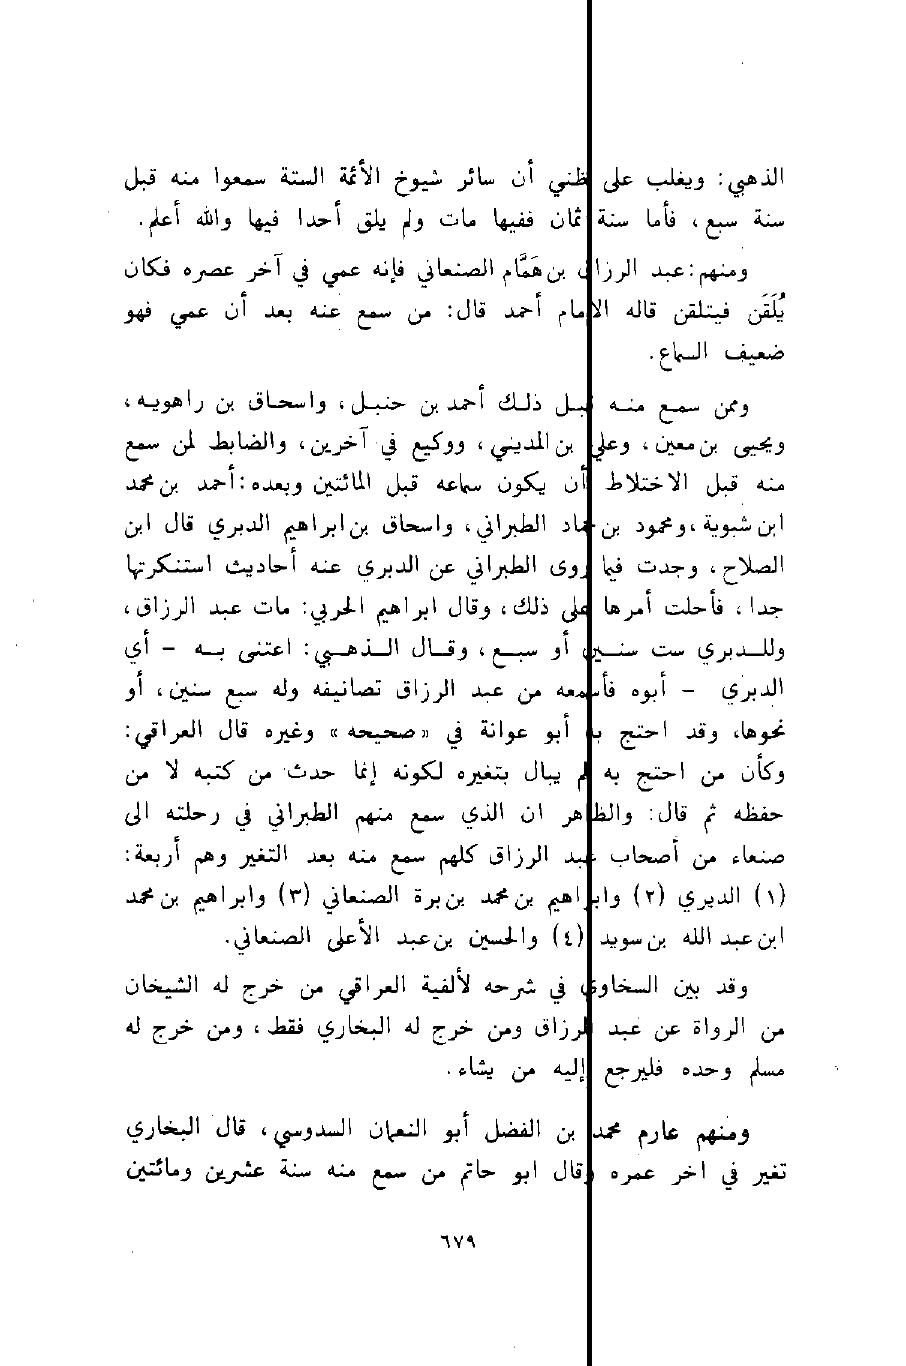 الذهبي: ويغلب على ظني أن سائر شيوخ الأئمة الستة سمعوا منه قبل
سنة سبع ، فأما سنة ثمان ففيها مات ولم يلق أحدا فيها والله أعلم .
ومنهم: عبد الرزاق بن هَمَّام الصنعاني فإنه عمي في آخر عصره فكان
يُلَقَن فيتلقن قاله الامام أحمد قال: من سمع عنه بعد أن عمي فهو
ضعيف السماع .
وممن سمع منه قبل ذلك أحمد بن حنبل ، واسحاق بن راهويه ،
ويحيى بن معين ، وعلي بن المديني ، ووكيع في آخرين ، والضابط لمن سمع
منه قبل الاختلاط أن يكون سماعه قبل المائتين وبعده : أحمد بن محمد
ابن شبوية ، ومحمود بن حماد الطبراني ، واسحاق بن ابراهيم الدبري قال ابن
الصلاح ، وجدت فيما روى الطبراني عن الدبرى عنه أحاديث استنكرتها
جدا ، فأحلت أمرها على ذلك ، وقال ابراهيم الحربي: مات عبد الرزاق ،
وللدبري ست سنين أو سبع ، وقال الذهبي: اعتنى به - أي
الدبري - أبوه فأسمعه من عبد الرزاق تصانيفه وله سبع سنين ، أو
نحوها، وقد احتج به أبو عوانة في «صحيحه» وغيره قال العراقي:
وكأن من احتج به لم يبال بتغيره لكونه إنما حدث من كتبه لا من
حفظه ثم قال: والظاهر ان الذي سمع منهم الطبراني في رحلته الى
صنعاء من أصحاب عبد الرزاق كلهم سمع منه بعد التغير وهم أربعة:
(١) الديري (٢) وابراهيم بن محمد بن برة الصنعاني (٣) وابراهيم بن محمد
ابن عبد الله بن سويد (٤) والحسين بن عبد الأعلى الصنعاني.
وقد بين السخاوي في شرحه لألفية العراقي من خرج له الشيخان
من الرواة عن عبد الرزاق ومن خرج له البخاري فقط ، ومن خرج له
مسلم وحده فليرجع إليه من يشاء .
ومنهم عارم محمد بن الفضل أبو النعمان السدوسي ، قال البخاري
تغير في اخر عمره وقال ابو حاتم من سمع منه سنة عشرين ومائتين
٦٧٩